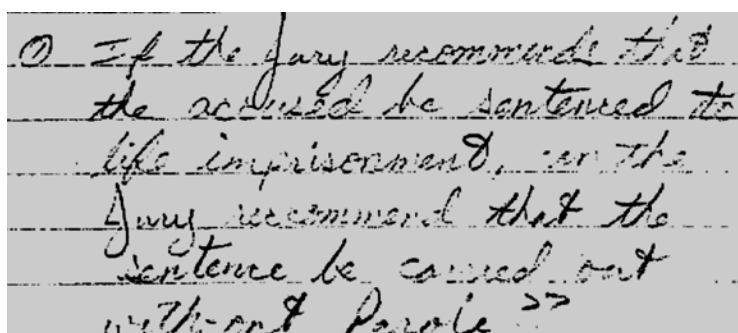 ① If the Jury recommends that
the accused be sentenced to
life imprisonment, can the
Jury reccommend that the
sentence be carried out
without Parole ”